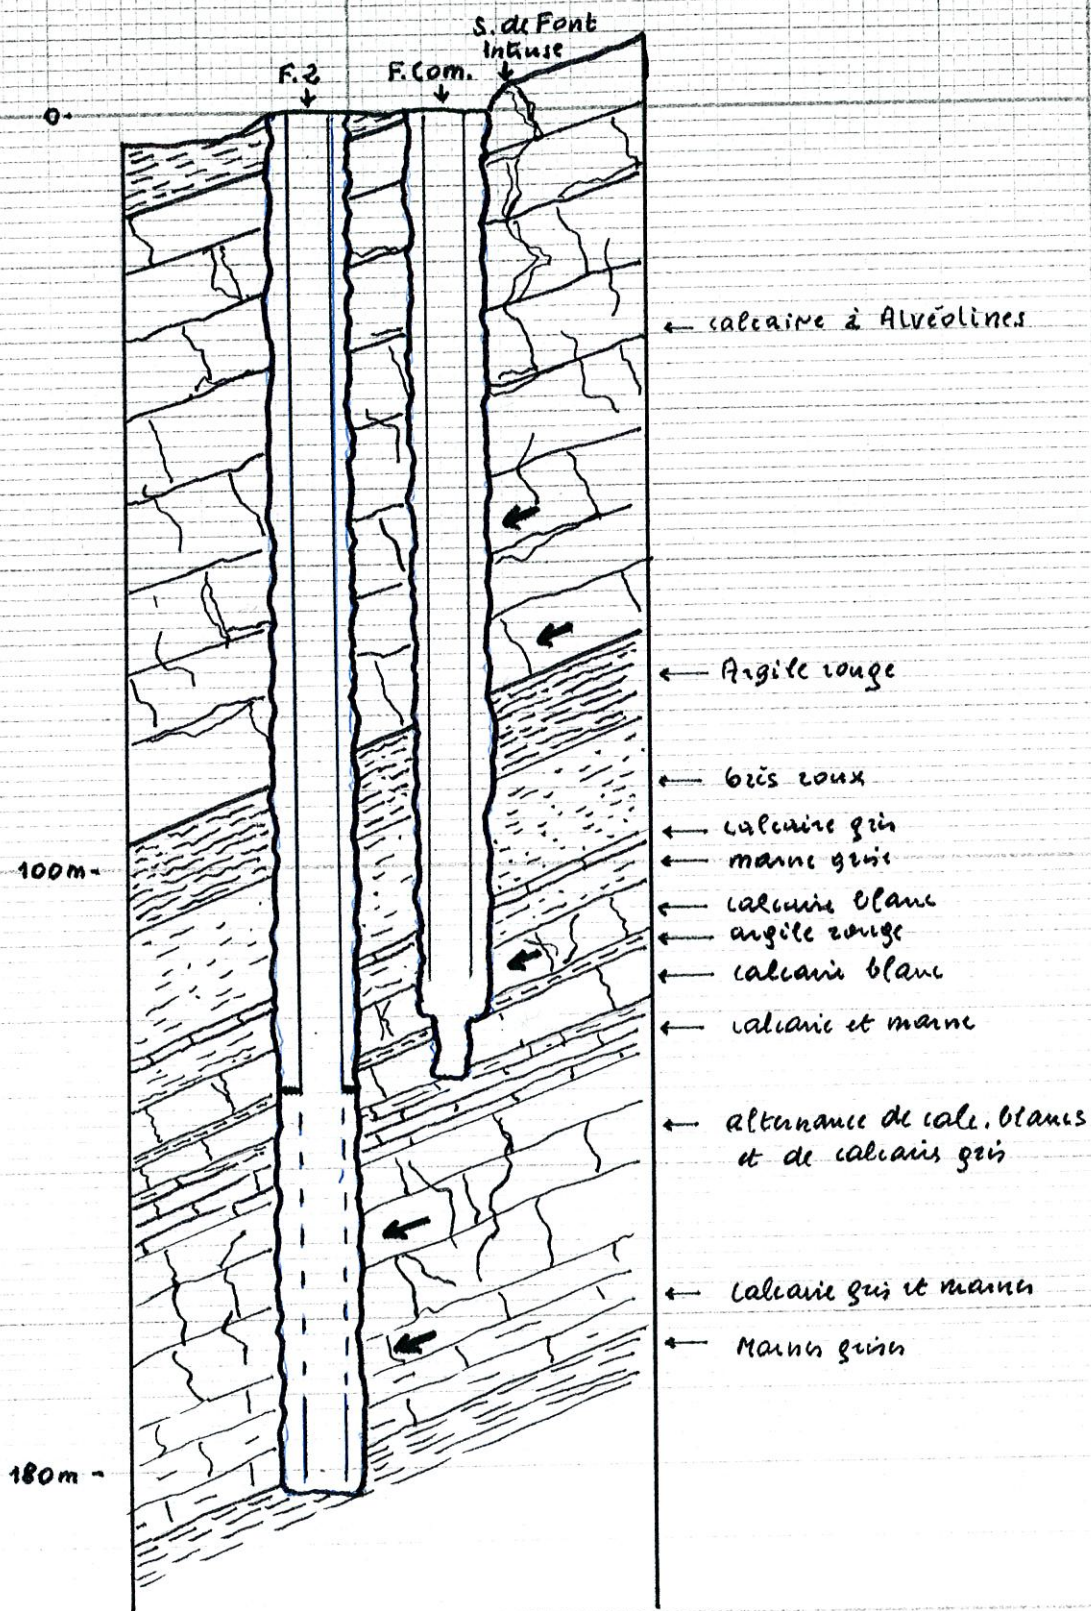 S. de Font
Intruse
F.2
F.Com.
0-
← calcaire à Alvéolines
← Argile rouge
← Grès roux
← calcaire gris
← marne grise
100m-
← calcaire blanc
← argile rouge
← calcaire blanc
← calcaire et marne
← alternance de calc. blancs
et de calcaires gris
← calcaire gris et marnes
← Marnes grises
180m -